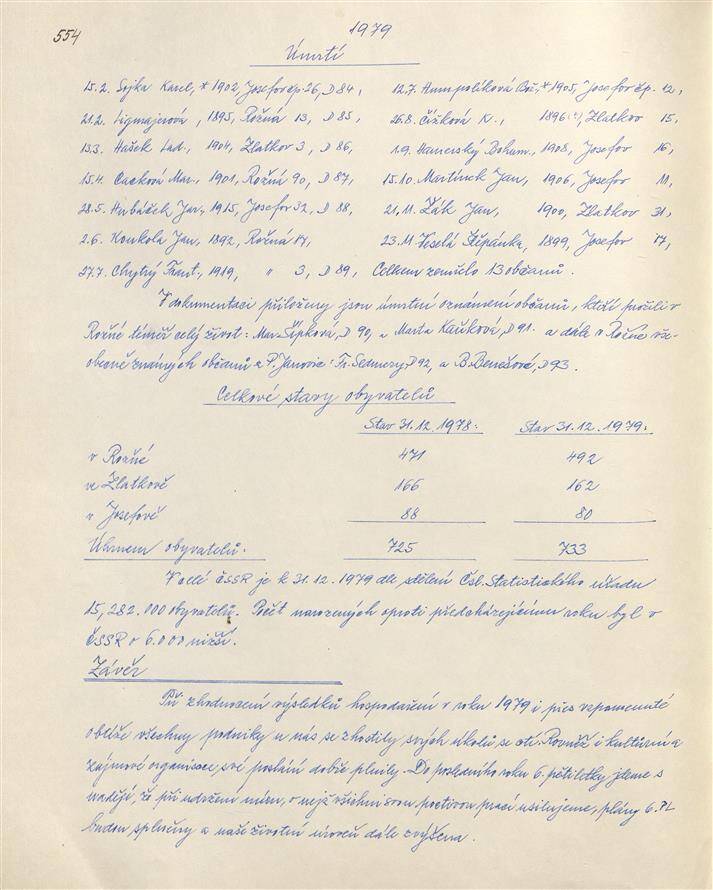 554
1979
Úmrtí
15.2. Sojka Karel, * 1902, Josefov čp. 26, D 84,
21.2. Ligmajerová, 1895, Rožná 13, D 85,
13.3. Hašek Lad., 1904, Zlatkov 3, D 86,
15.4. Cacková Mar., 1901, Rožná 90, D 87,
28.5. Hubáček Jar., 1915, Josefov 32, D 88,
2.6. Koukola Jan, 1892, Rožná 17,
27.7. Chytrý Frant., 1919, " 3, D 89,
12.7. Humpolíková Bož., * 1905, Josefov čp. 12,
26.8. Čížková K., 1896, Zlatkov 15,
1.9. Bohum., 1908, Josefov 16,
15.10. Martínek Jan, 1906, Josefov 11,
21.11. Žák Jan, 1900, Zlatkov 31,
23.11 Veselá Štěpánka, 1899, Josefov 17,
Celkem zemřelo 13 občanů.
V dokumentaci přiloženy jsou úmrtní oznámení občanů, kteří prožili v
Rožné téměř celý život: Mar. Šípková, D 90, a Marta Kašková, D 91. a dále v Rožné vše-
obecně známých občanů z P. Janovic: Fr. Sedmery, D 92, a B. Benešové, D 93.
Celkové stavy obyvatelů
Stav 31.12.1978: Stav 31.12.1979:
v Rožné 471 492
ve Zlatkově 166 162
v Josefově 88 80
Úhrnem obyvatelů. 725 733
V celé ČSSR je k 31.12.1979 dle sdělení Čsl. Statistického úřadu
15,282.000 obyvatelů. Počet narozených oproti předcházejícímu roku byl v
ČSSR o 6.000 nižší.
Závěr
Při zhodnocení výsledků hospodaření v roku 1979 i přes vzpomenuté
obtíže všechny podniky u nás se zhostily svých úkolů se ctí. Rovněž i kulturní a
zájmové organisace své poslání dobře plnily. Do posledního roku 6. pětiletky jdeme s
nadějí, že při udržení míru, o nějž všichni svou poctivou prací usilujeme, plány 6. PL
budou splněny a naše životní úroveň dále zvýšena.